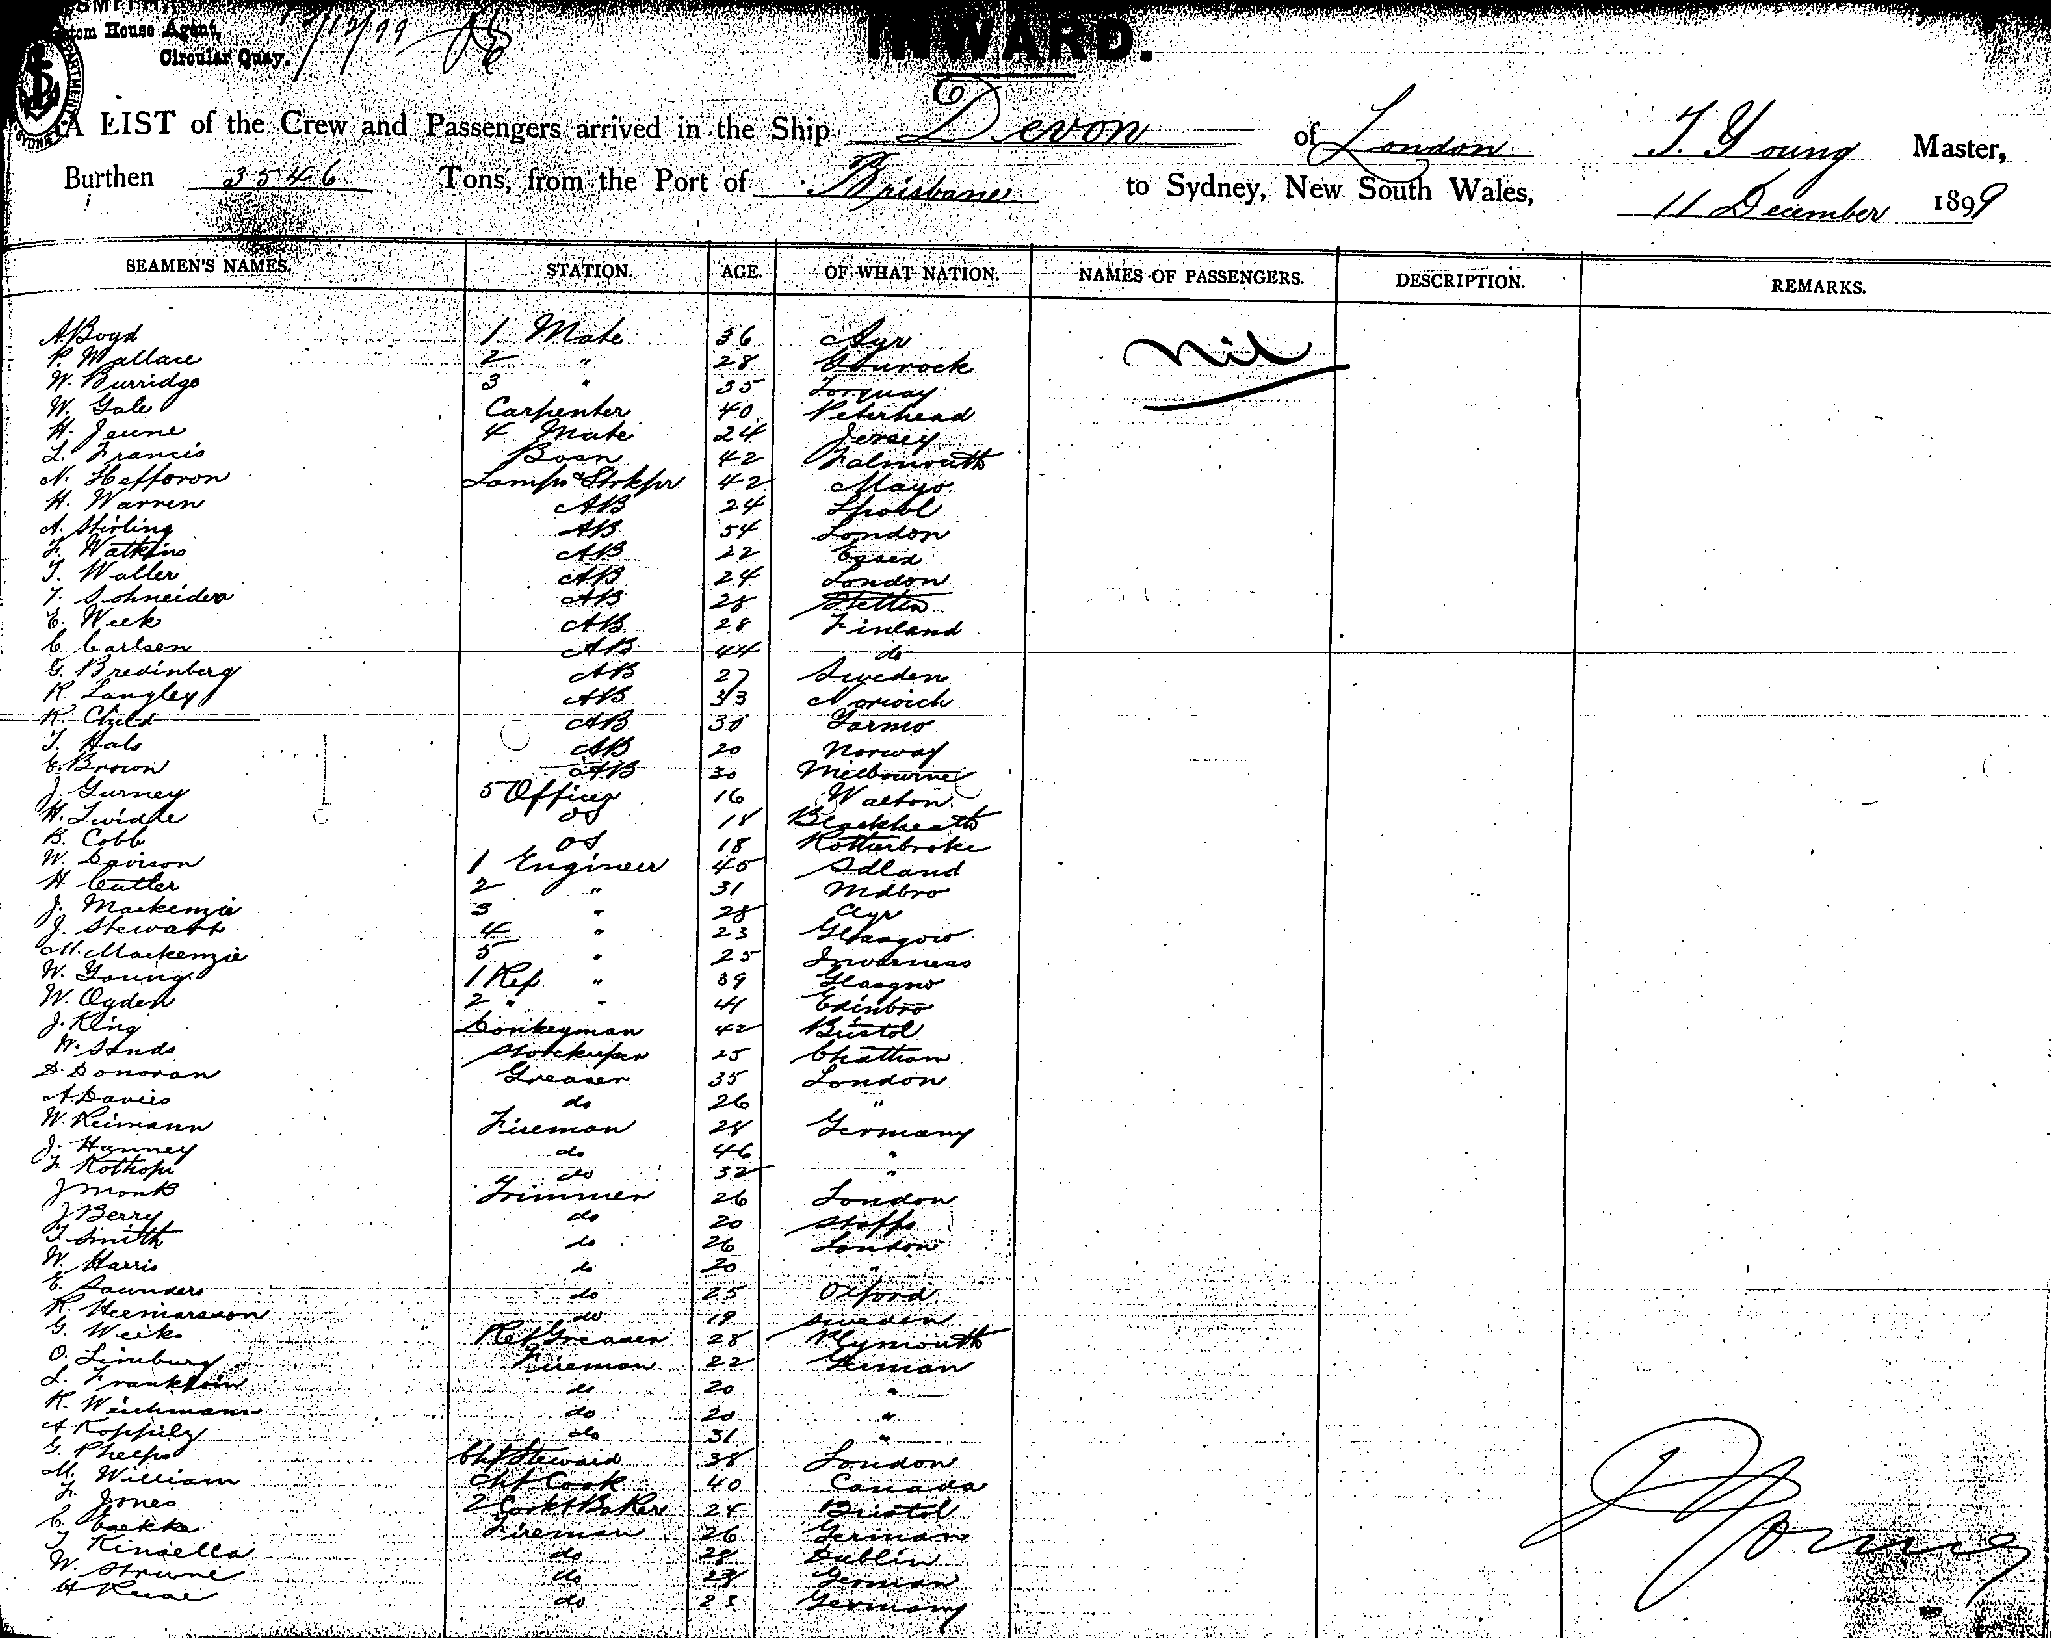 SMITH,
Custom House Agent,
Circular Quay.
INWARD.
A LIST of the Crew and Passengers arrived in the Ship Devon of London T. Young Master,
Burthen 3546 Tons, from the Port of Brisbane to Sydney, New South Wales, 11 December 1899
SEAMEN'S NAMES. STATION. AGE. OF WHAT NATION. NAMES OF PASSENGERS. DESCRIPTION. REMARKS.
A Boyd 1 Mate 36 Ayr nil
P. Wallace 2 " 28 Gourock
W. Burridge 3 " 35 Torquay
W. Gale Carpenter 40 Peterhead
H. Jeune 4 Mate 24 Jersey
L. Francis Bosn 42 Falmouth
N. Hefforon Lamps & Stokpr 42 Mayo
H. Warren AB 24 Lpool
A. Stirling AB 54 London
F. Watkins AB 22 Essex
T. Waller AB 24 London
Schneider AB 28 Stettin
E. Week AB 28 Finland
C Carlsen AB 44 do
G. Bredinberg AB 27 Sweden
R. Langley AB 33 Norwich
R. Child AB 30 Yarmo
T. Hals AB 20 Norway
E. Brown AB 30 Melbourne
J. Gurney 5 Officer 16 Walton
H. Twidle OS 18 Blackheath
B. Cobb OS 18 Rotherbroke
W. Davison 1 Engineer 45 Sdland
H Cutler 2 " 31 Mdbro
J. Mackenzie 3 " 28 Ayr
J. Stewart 4 " 23 Glasgow
M. Mackenzie 5 " 25 Inverness
W. Young 1 Ref " 39 Glasgow
W. Ogden 2 " " 41 Edinbro
J. King Donkeyman 42 Bristol
W. Sands Storekeeper 25 Chatham
D. Donovan Greaser 35 London
A. Davies do 26 "
W. Reimann Fireman 28 Germany
J. Hanney do 46 "
F. Rothops do 32 "
J Monk Trimmer 26 London
J Berry do 20 Staffs
T. Smith do 26 London
W. Harris do 20 "
E. Saunders do 25 Oxford
R. Heemarsson do 19 Sweden
G. Weeks Ref Greaser 28 Plymouth
O. Limburg Fireman 22 German
L. Franklin do 20 "
R. Weichmann do 20 "
A Koppily do 31 "
G. Phelps Chf Steward 38 London
M. William Chf Cook 40 Canada
F. Jones 2 Cook & Baker 24 Bristol
C. Fireman 26 German
T. Kinsella do 28 Dublin
W. Struve do 23 German
H do 23 Germany
J Young